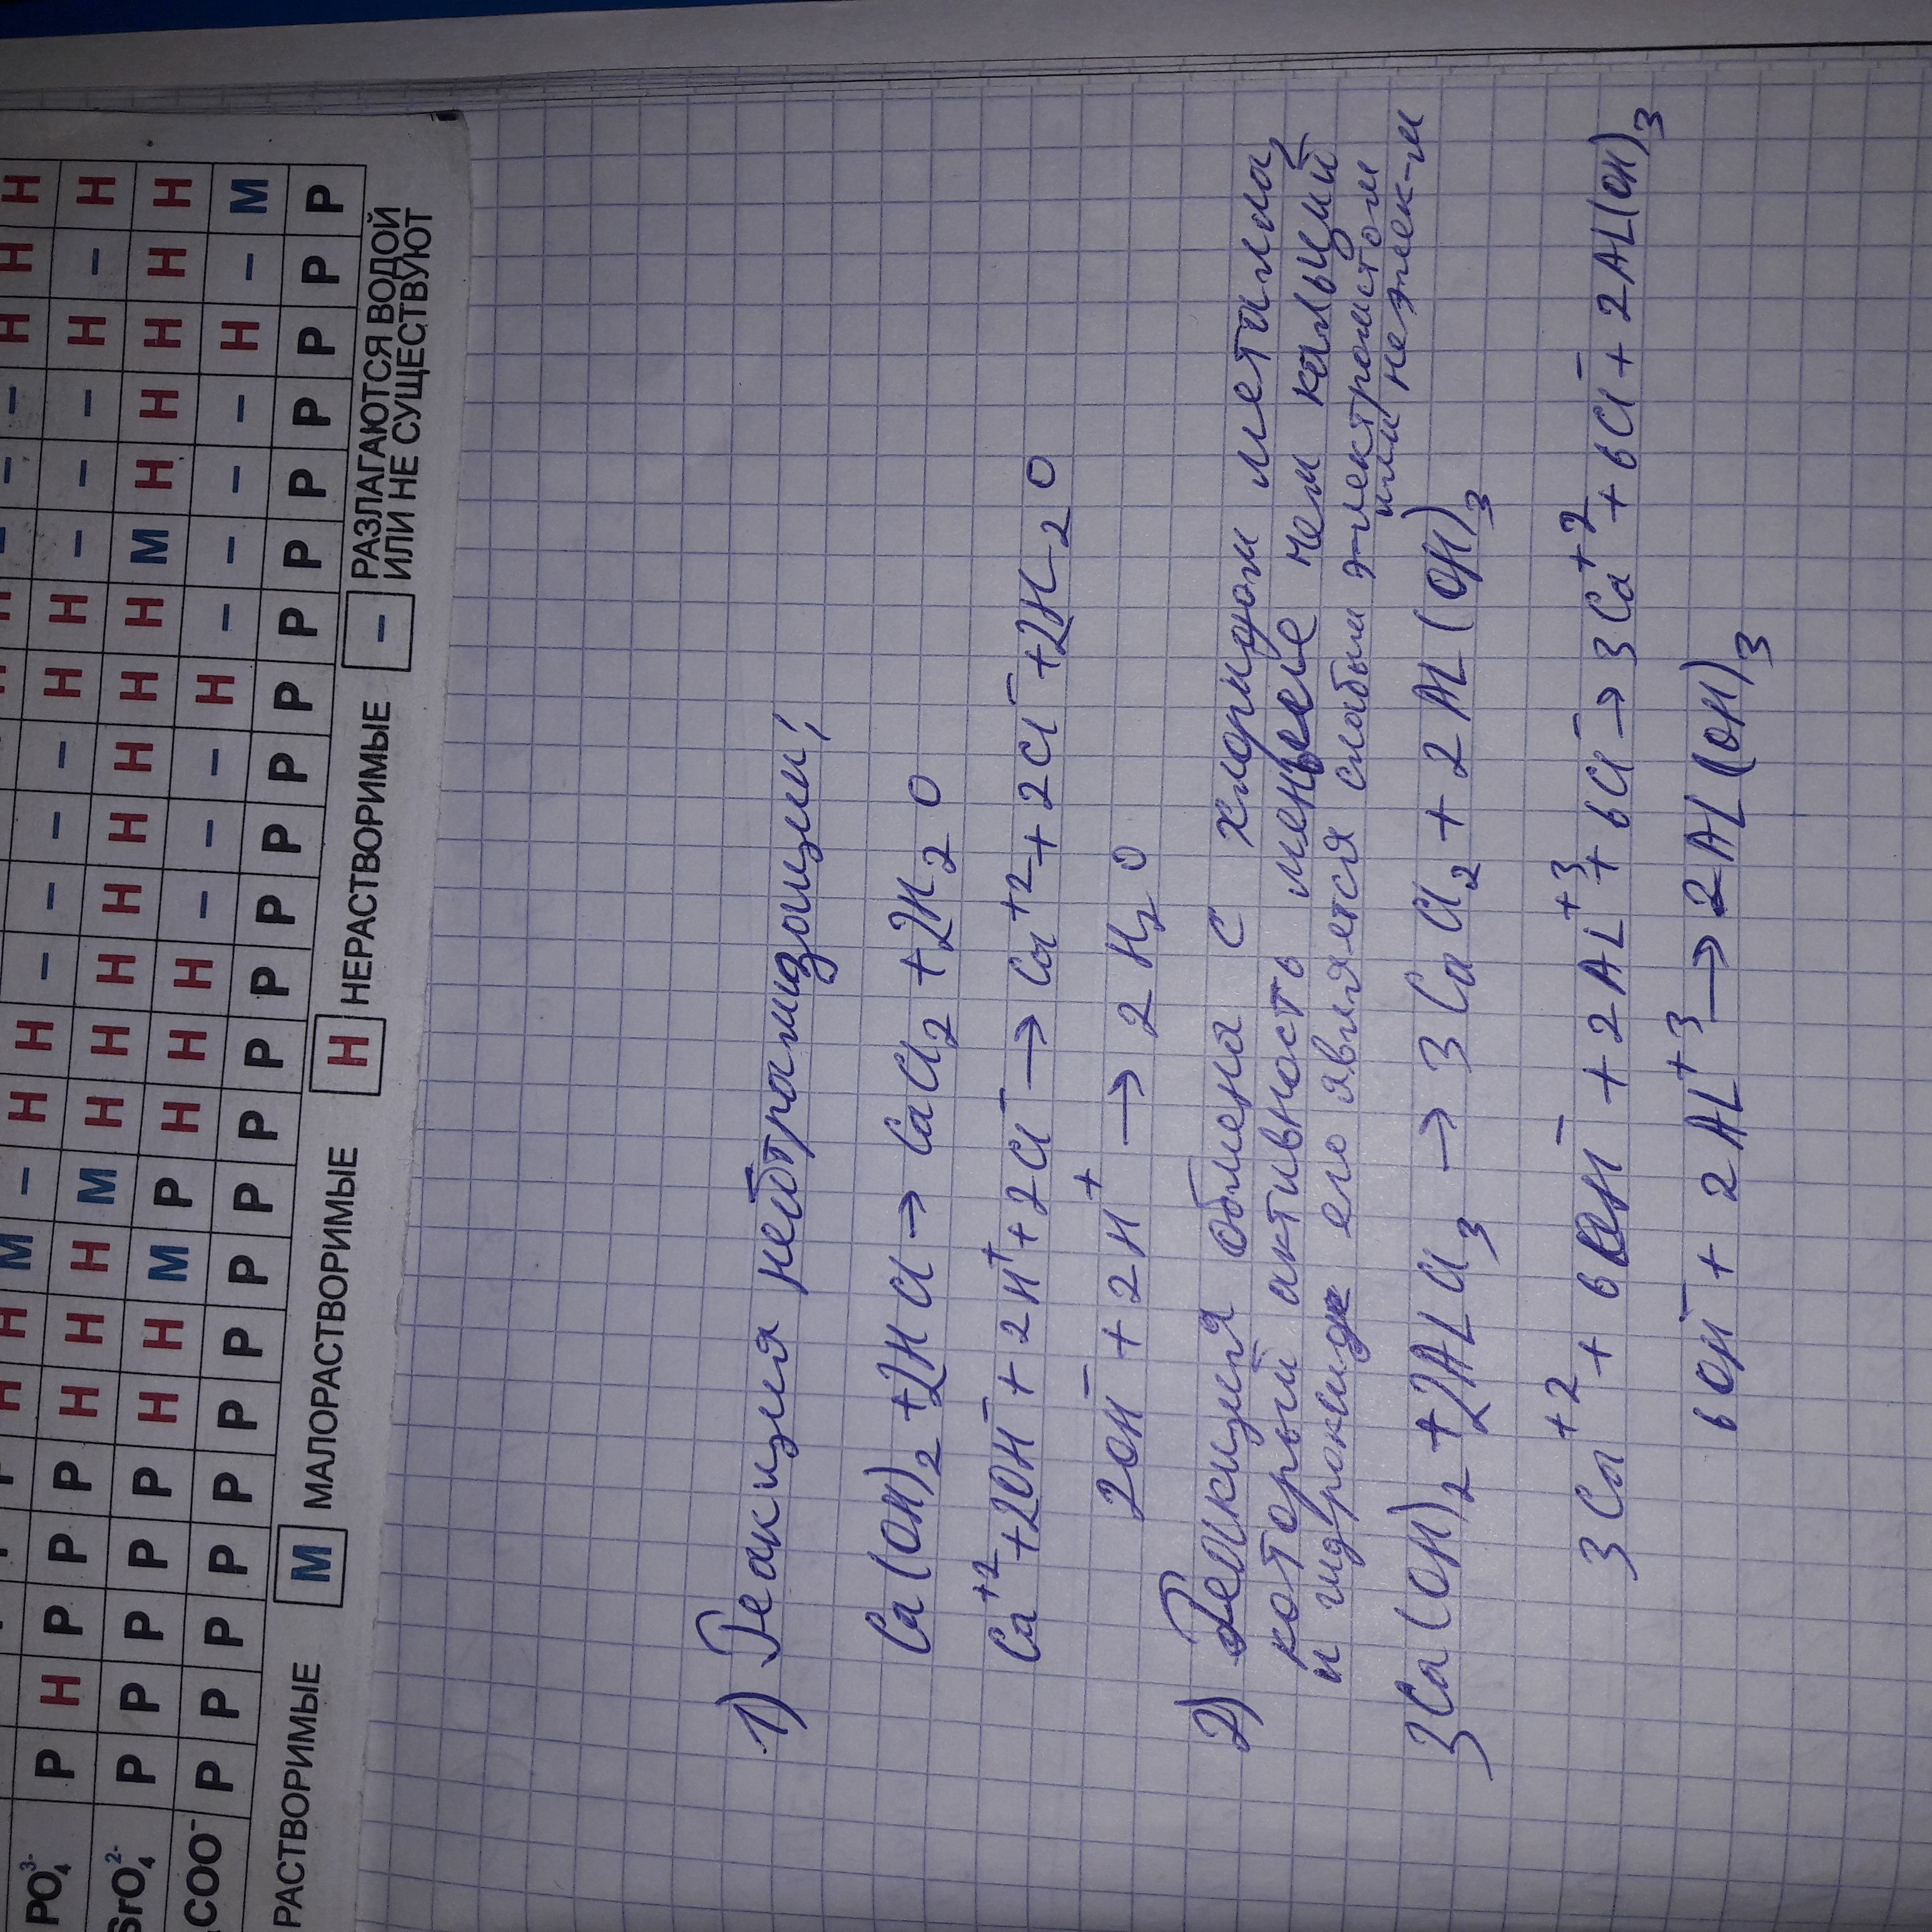 - - H H H
H H M - H H - - - - H H - - - H - H
PO₄³⁻ Р Н Р Р Р Н Н Н М Н Н Н Н Н Н Н Н М Н Н Н Н Н
SrO₄²⁻ Р Р Р Р Р Н Н М Р Н Н Н – – – Н – – – – Н – М
COO⁻ Р Р Р Р Р Р Р Р Р Р Р Р Р Р Р Р Р Р Р Р Р Р Р
РАСТВОРИМЫЕ М МАЛОРАСТВОРИМЫЕ Н НЕРАСТВОРИМЫЕ – РАЗЛАГАЮТСЯ ВОДОЙ
ИЛИ НЕ СУЩЕСТВУЮТ
1) Реакция нейтрализации;
Ca(OH)₂ + 2HCl → CaCl₂ + 2H₂O
Ca⁺² + 2OH⁻ + 2H⁺ + 2Cl⁻ → Ca⁺² + 2Cl⁻ + 2H₂O
2OH⁻ + 2H⁺ → 2H₂O
2) Реакция обмена с хлоридом металла,
который активность меньше чем кальций
и гидроксиде его является слабым электролитом
или неэлек-м
3Ca(OH)₂ + 2ALCl₃ → 3CaCl₂ + 2AL(OH)₃
3Ca⁺² + 6OH⁻ + 2AL⁺³ + 6Cl⁻ → 3Ca⁺² + 6Cl⁻ + 2AL(OH)₃
6OH⁻ + 2AL⁺³ → 2AL(OH)₃